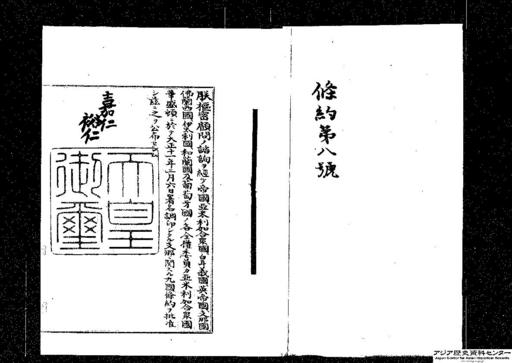 條約第八號
朕樞密顧問ノ諮詢ヲ經テ帝國亞米利加合衆國白耳義國英帝國支那國
佛蘭西國伊太利國和蘭國及葡萄牙國ノ各全權委員カ亞米利加合衆國
華盛頓ニ於テ大正十一年二月六日署名調印シタル支那ニ關スル九國條約ヲ批准
シ茲ニ之ヲ公布セシム
嘉仁
裕仁
天皇
御璽
アジア歴史資料センター
Japan Center for Asian Historical Records